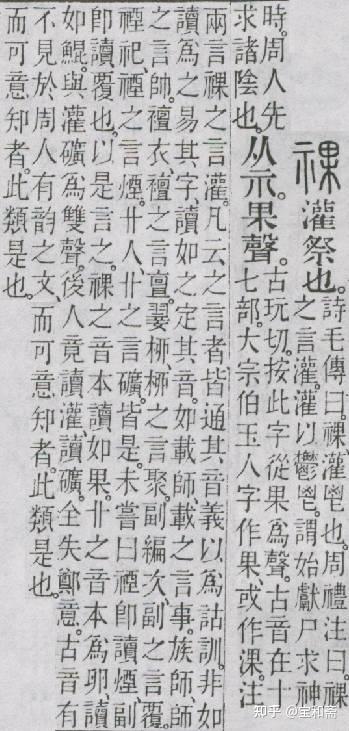 祼 灌祭也。
詩毛傳曰。祼灌鬯也。周禮注曰。祼
之言灌。灌以鬱鬯。謂始獻尸求神
時。周人先
求諸陰也。
从示。果聲。
古玩切。按此字從果爲聲。古音在十
七部。大宗伯玉人字作果、或作淉。注
兩言祼之言灌。凡云之言者、皆通其音義以爲詁訓。非如
讀爲之易其字、讀如之定其音。如載師、載之言事。族師、師
之言帥。襢衣、襢之言亶。翣柳、柳之言聚。副編次、副之言覆。
禋祀、禋之言煙。卝人、卝之言礦。皆是。未嘗曰禋卽讀煙、副
卽讀覆也。以是言之。祼之音本讀如果。卝之音本爲卵。讀
如鯤。與灌礦爲雙聲。後人竟讀灌讀礦。全失鄭意。古音有
不見於周人有韵之文、而可意知者。此類是也。
而可意知者。此類是也。
知乎 @宝和斋